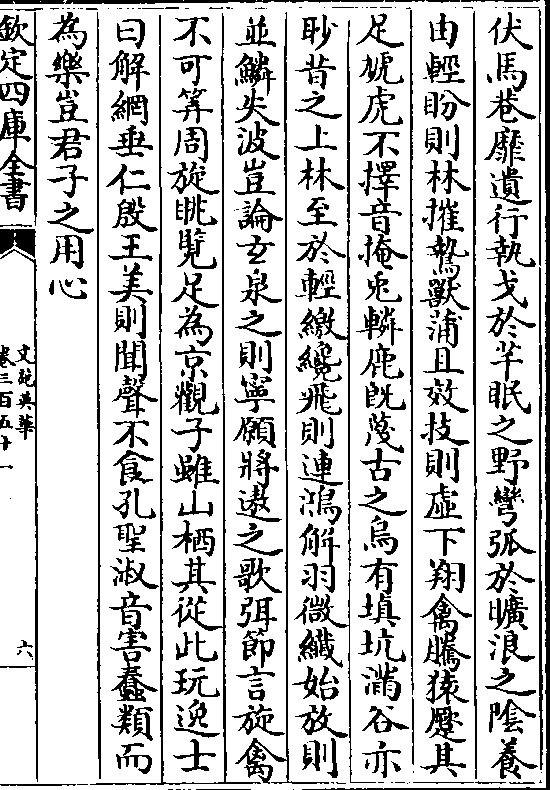 伏馬巷靡遺行執戈於芊眠之野彎弧於曠浪之隂養
由輕盼則林摧鷙獸蒲且效技則虚下翔禽騰猿麈其
足虓虎不擇音掩兎轔鹿既蔑古之烏有塡坑滿谷亦
眇昔之上林至於輕繳纔飛則連鴻解羽微纎始放則
並鱗失波豈論玄泉之則寧願將遨之歌弭節言旋禽
不可筭周旋眺覽足為京觀子雖山栖其從此玩逸士
曰解網垂仁殷王美則聞聲不食孔聖淑音害蠢類而
為樂豈君子之用心
欽定四庫全書
文苑英華
卷三百五十一
六